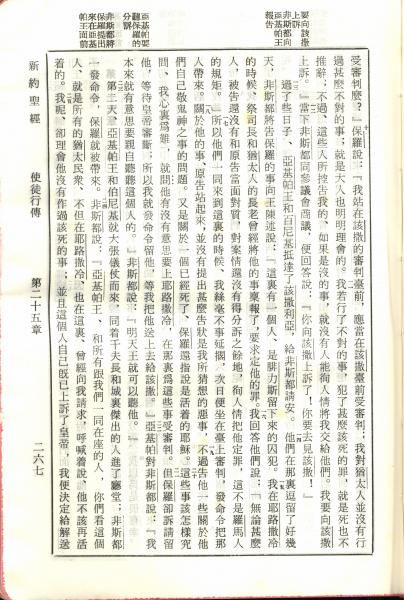 要向該撒
上訴
非斯都向
亞基帕王
報告
亞基帕要
聽保羅的
分訴
非斯都將
保羅提出
來在亞基
帕王面前
受審判麼？』保羅說：『我站在該撒的審判臺前，應當在該撒臺前受審判；我對猶太人並沒有行
過甚麼不對的事；就是大人也明明理會的。我若行了不對的事，犯了甚麼該死的罪，就是死也不
推辭；不過、這些人所控告我的、如果是沒的事，就沒有人能徇人情將我交給他們。我要向該撒
上訴。』當下非斯都同參議會商議，便回答說：『你向該撒上訴了！你要去見該撒！』
過了些日子、亞基帕王和百尼基抵達了該撒利亞、給非斯都請安。他們在那裏逗留了好幾
天，非斯都將告保羅的事向王陳述說：『這裏有一個人，是腓力斯留下來的囚犯。我在耶路撒冷
的時候、祭司長和猶太人的長老曾經將他的事稟報了，要求定他的罪。我回答他們說：「無論甚麼
人，被告還沒有和原告當面對質、對案情還沒有得分訴之餘地，徇人情把他定罪，這不是羅馬人
的規矩。」所以他們一同來到這裏的時候、我絲毫不事延擱，次日便坐在臺上審判，發命令把那
人帶來。關於他的事、原告站起來，並沒有提出甚麼告狀是我所猜想的惡事，不過告他一些關於他
們自己敬鬼神之事的問題，又是關於一個已經死了、保羅還指說是活着的耶穌。這些事該怎樣究
問、我心裏爲難，就問他有沒有意思要上耶路撒冷，在那裏爲這些事受審判。但保羅卻訴請留
他，等待皇帝審斷；所以我就發命令留他，等我把他送上去給該撒。』亞基帕對非斯都說：『我
本來就有意思要親自聽聽這個人的。』非斯都說：『明天就可以聽他。』
第二天、亞基帕王和伯尼基就大張儀仗而來，同着千夫長和城裏傑出的人進了廳堂；非斯都
一發命令，保羅就被帶來。非斯都說：『亞基帕王、和所有跟我們一同在座的人，你們看這個
人、就是所有的猶太民衆、不但在耶路撒冷、也在這裏、曾經向我請求、呼喊着說、他不該再活
着的。我呢、卻理會他沒有作過該死的事；並且這個人自己旣已上訴了皇帝、我便決定給解送
新約聖經　使徒行傳　第二十五章　二六七